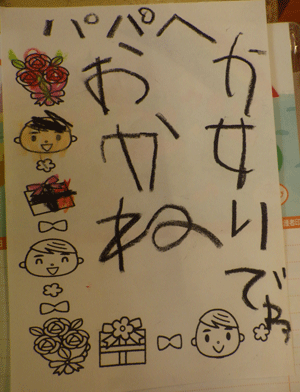 パパへ
おかね
かせいでね